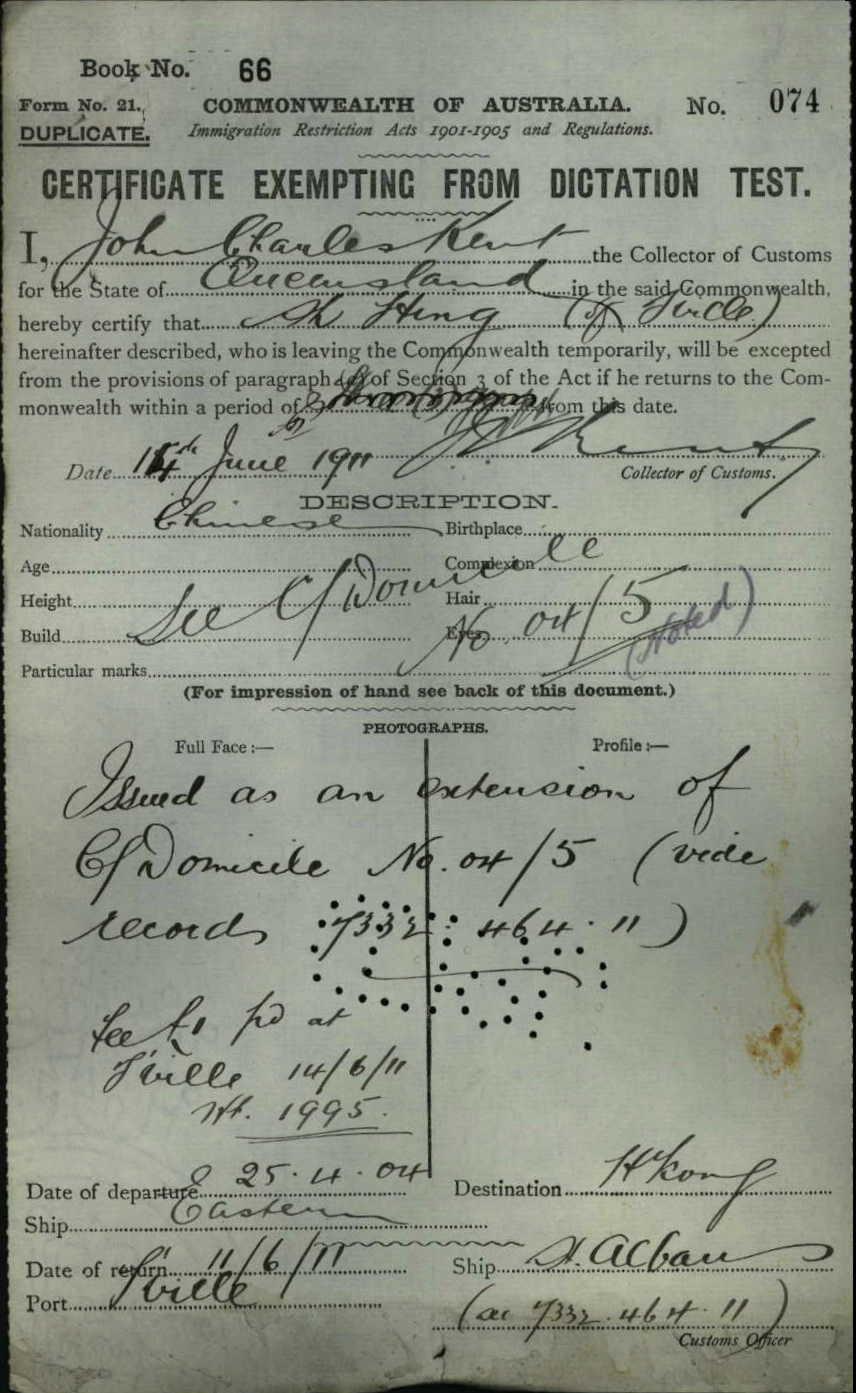 Book No. 66
Form No. 21. COMMONWEALTH OF AUSTRALIA. No. 074
DUPLICATE. Immigration Restriction Acts 1901-1905 and Regulations.
CERTIFICATE EXEMPTING FROM DICTATION TEST.
I, John Charles Kent the Collector of Customs
for the State of Queensland in the said Commonwealth,
hereby certify that Ah Hing (of T'ville)
hereinafter described, who is leaving the Commonwealth temporarily, will be excepted
from the provisions of paragraph of Section 3 of the Act if he returns to the Com-
monwealth within a period of from this date.
Date 14th June 1911 Kent
Collector of Customs.
DESCRIPTION.
Nationality Chinese Birthplace
Age Complexion
Height Hair
See C/Domicile No. 04/5 (Noted)
Build Eyes
Particular marks
(For impression of hand see back of this document.)
PHOTOGRAPHS.
Full Face :— Profile :—
Issued as an extension of
C/Domicile No. 04/5 (vide
records 7332 . 464 . 11)
Fee £1 pd at
T'ville 14/6/11
1995.
Date of departure 25.4.04 Destination H'Kong
Ship Eastern
Date of return 11/6/11 Ship St. Albans
Port T'ville
7332.464.11)
Customs Officer